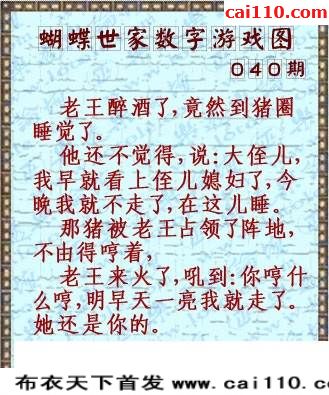 cai110.com
蝴蝶世家数字游戏图
040期
老王醉酒了,竟然到猪圈
睡觉了。
他还不觉得,说:大侄儿,
我早就看上侄儿媳妇了,今
晚我就不走了,在这儿睡。
那猪被老王占领了阵地,
不由得哼着,
老王来火了,吼到:你哼什
么哼,明早天一亮我就走了。
她还是你的。
布衣天下首发 www.cai110.com